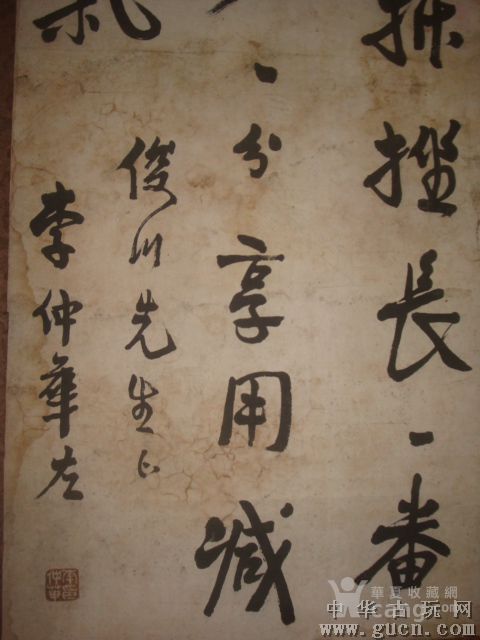 挫長一番
一分享用減
氣
俊川先生正
李仲華左
華夏收藏網
cang.com
中华古玩网
www.gucn.com